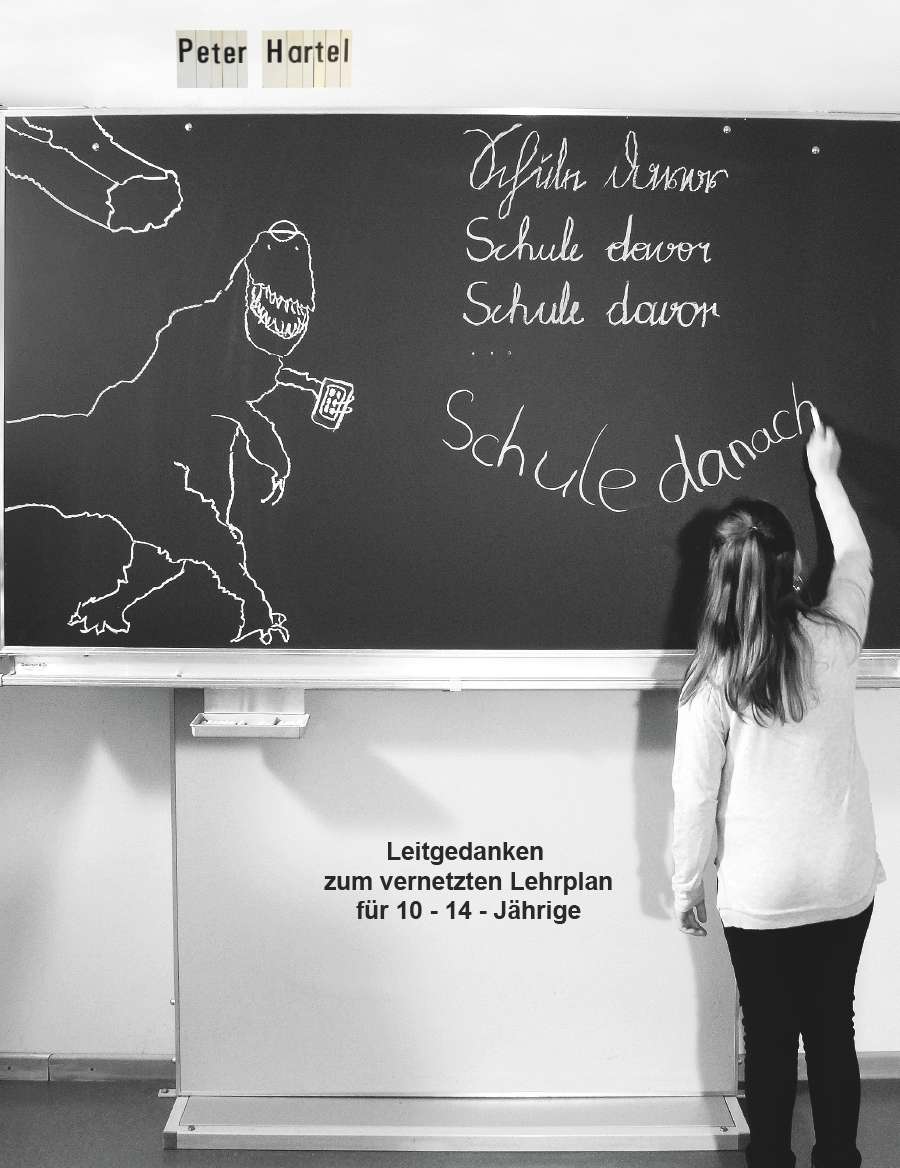 Peter Hartel
Schule davor
Schule davor
Schule davor
...
Schule danach
Leitgedanken
zum vernetzten Lehrplan
für 10 - 14 - Jährige